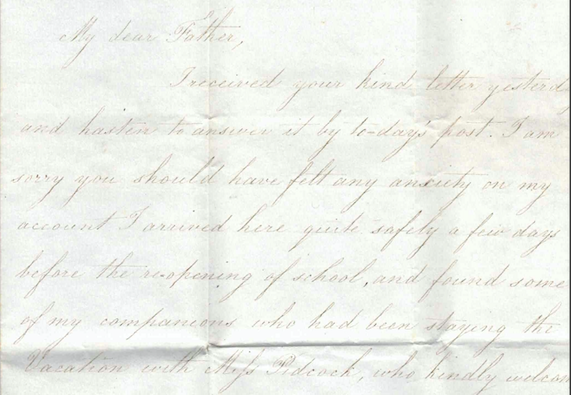 My dear Father,
I received your kind letter yesterd
and hasten to answer it by to-day's post. I am
sorry you should have felt any anxiety on my
account I arrived here quite safely a few days
before the re-opening of school, and found some
of my companions who had been staying the
Vacation with Miss Pidcock, who kindly welcom